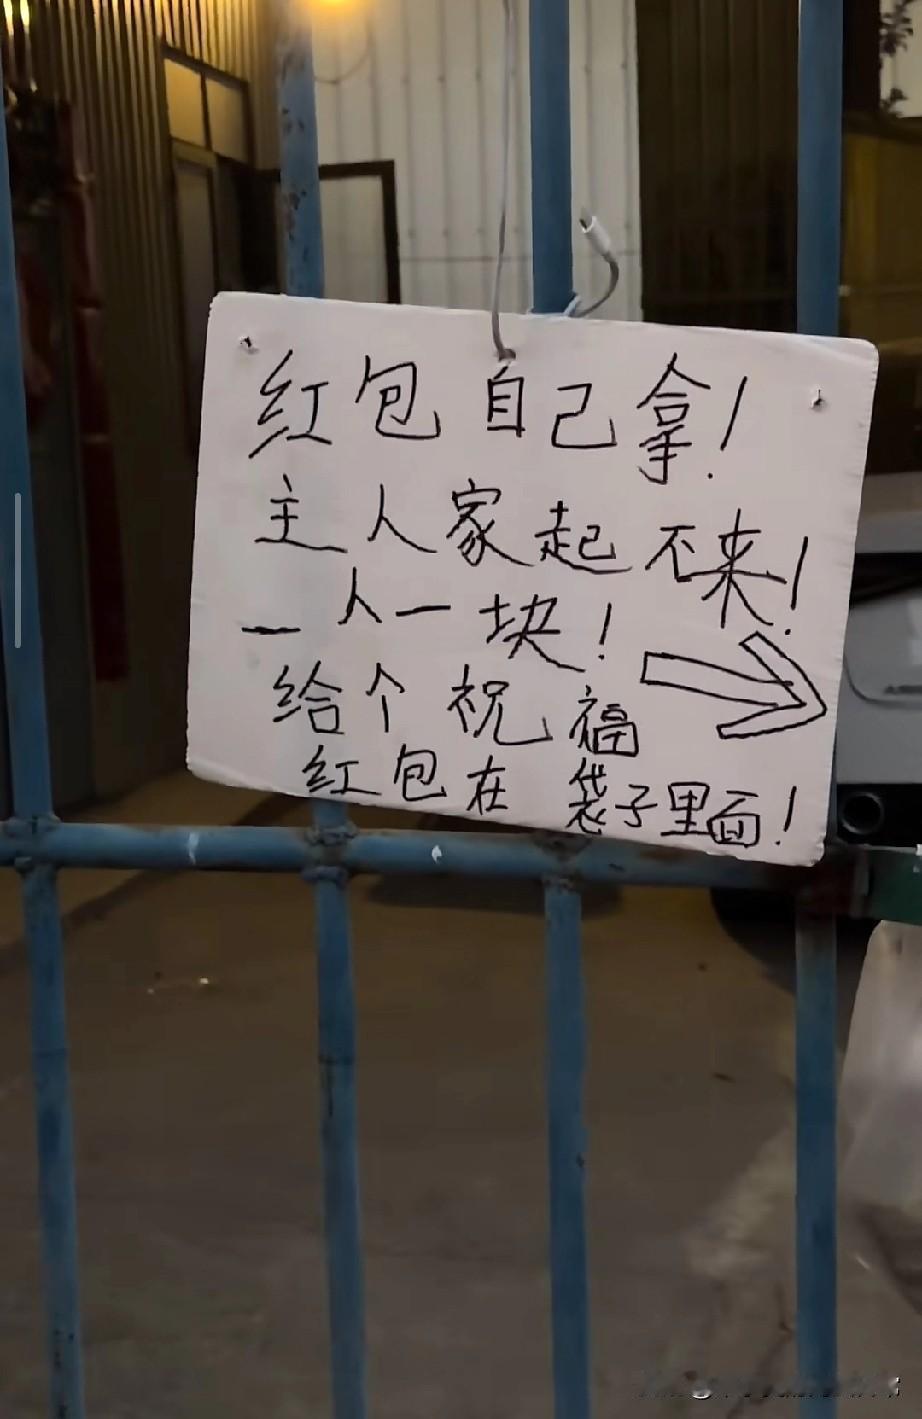 红包自己拿！
主人家起不来！
一人一块！
给个祝福
红包在袋子里面！